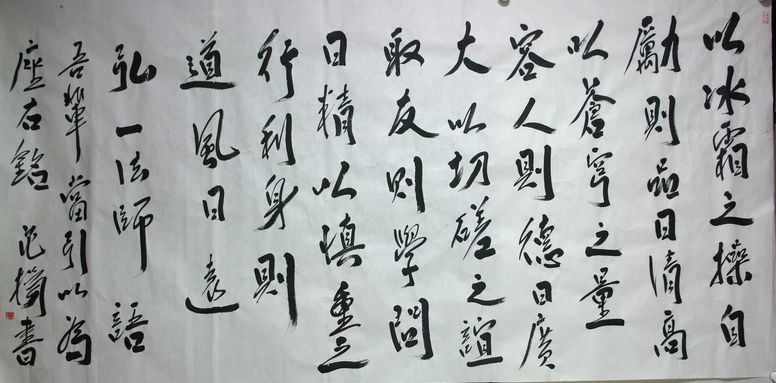 以冰霜之操自
勵則品日清高
以蒼穹之量
容人則德日廣
大以切磋之誼
取友則學問
日精以慎重之
行利身則
道風日遠
弘一法師 語
吾輩當引以為
座右銘 范 書